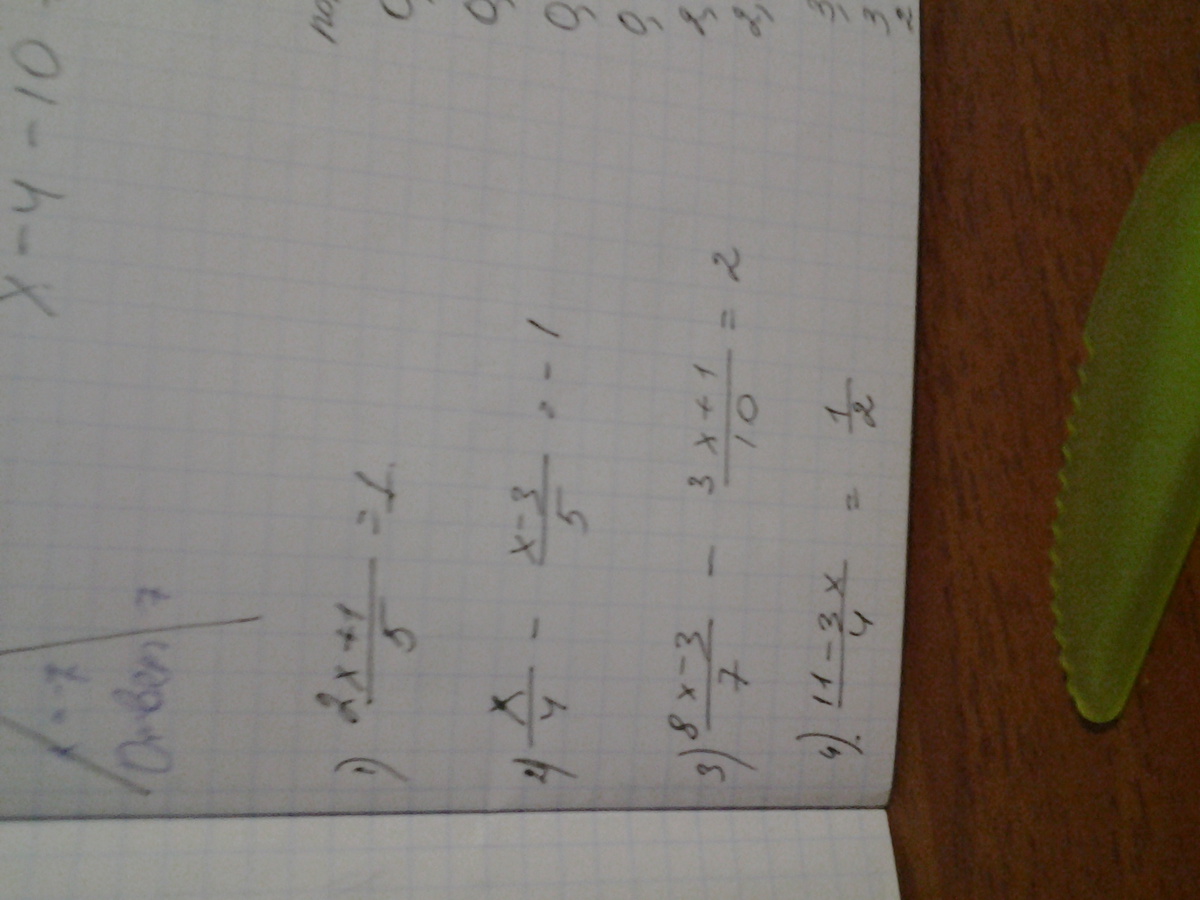 x - 4 - 10
x = -7
Ответ 7
1) \frac{2x+1}{5} = 1
2) \frac{x}{4} - \frac{x-3}{5} = -1
3) \frac{8x-3}{7} - \frac{3x+1}{10} = 2
4) \frac{11-3x}{4} = \frac{1}{2}